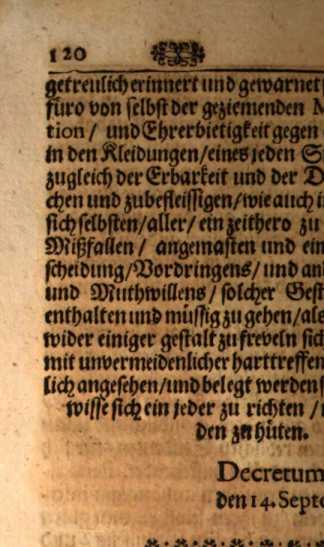 120
getreulich erinnert und gewarnet
furo von selbst der geziemenden M
tion / und Ehrerbietigkeit gegen
in den Kleidungen / eines jeden S
zugleich der Erbarkeit und der D
chen und zubefleissigen / wie auch i
sich selbsten / aller / ein zeithero zu
Mißfallen / angemasten und ein
scheidung / Vordringens / und an
und Muthwillens / solcher Gest
enthalten und müssig zu gehen / als
wider einiger gestalt zu freveln sich
mit unvermeidenlicher harttreffen
lich angesehen / und belegt werden s
wisse sich ein jeder zu richten /
den zu hüten.
Decretum
den 14. Septe